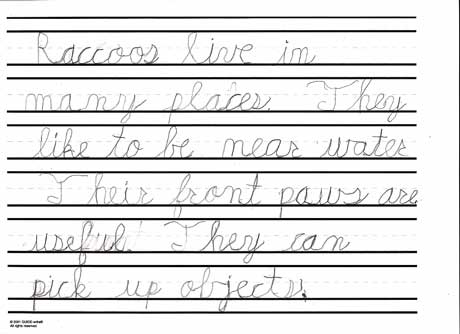 Raccoos live in
many places. They
like to be near water
Their front paws are
useful. They can
pick up objects.
© 2001 QUICC-writes®
All rights reserved.